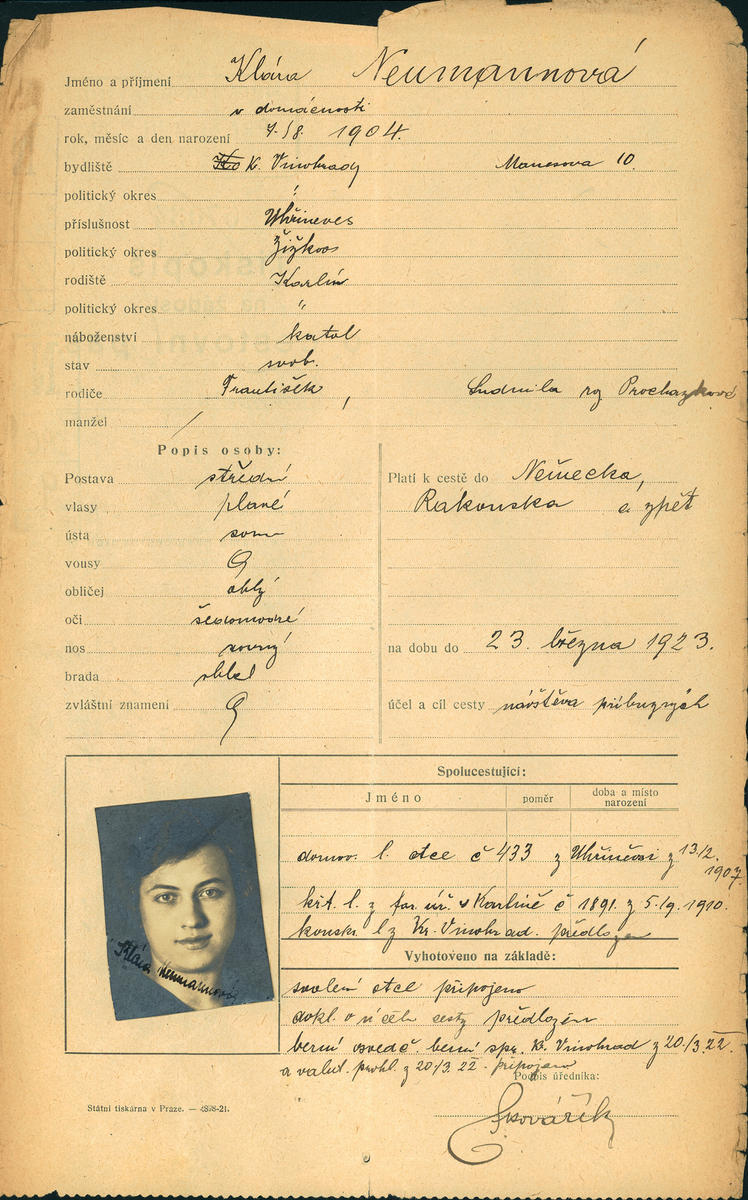 Jméno a příjmení Klára Neumannová
zaměstnání v domácnosti
rok, měsíc a den narození 7./8. 1904.
bydliště K. Vinohrady Manesova 10.
politický okres "
příslušnost Uhříneves
politický okres Žižkov
rodiště Karlín
politický okres "
náboženství katol
stav svob.
rodiče František, Ludmila roz Procházková
manžel /
Popis osoby:
Postava střední
vlasy plavé
ústa soum
vousy
obličej oblý
oči šedomodré
nos rovný
brada obl
zvláštní znamení
Platí k cestě do Německa,
Rakouska a zpět
na dobu do 23. března 1923.
účel a cíl cesty návštěva příbuzných
Spolucestující:
Jméno poměr doba a místo narození
domov. l. otce č 433 z Uhříněvsi z 13/2. 1907.
křt. l. z far. úř. v Karlíně č 1891. z 5./9. 1910.
konskr. l z Kr. Vinohrad. předlož
Vyhotoveno na základě:
svolení otce připojeno
dokl. o účelu cesty předložen
berní osvědč. berní spr. K. Vinohrad z 20./3. 22.
a valut. prohl. z 20/3. 22. připojeno
Podpis úředníka:
Kovářík
Klára Neumannová
Státní tiskárna v Praze. — 4898-21.